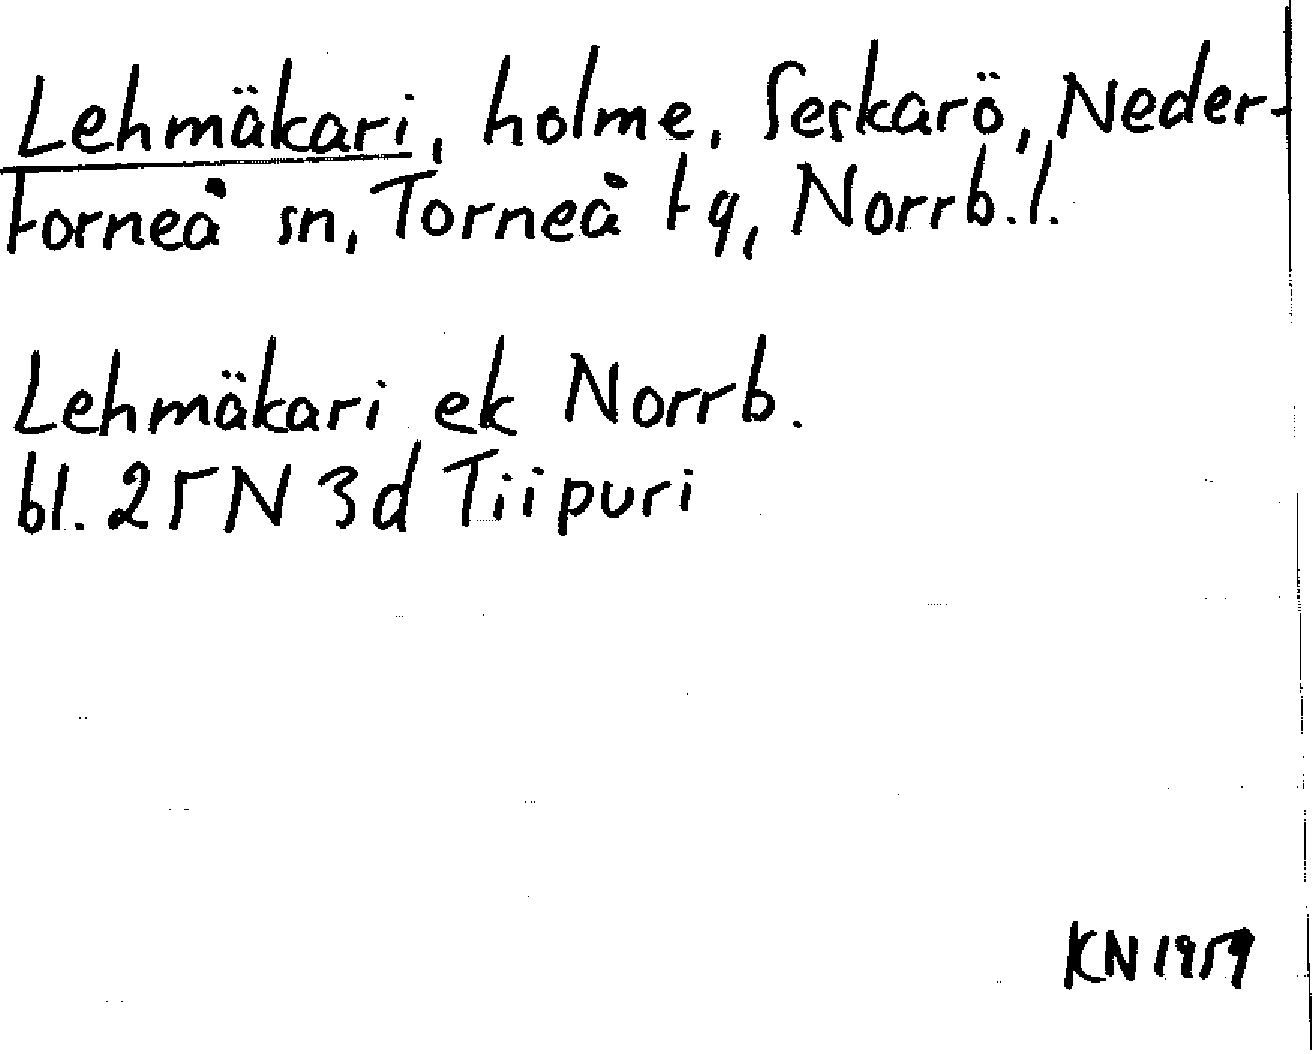 Lehmäkari, holme, Seskarö, Neder-
torneå sn, Torneå tg, Norrb. l.
Lehmäkari ek Norrb.
bl. 25 N 3d Tiipuri
KN 1959